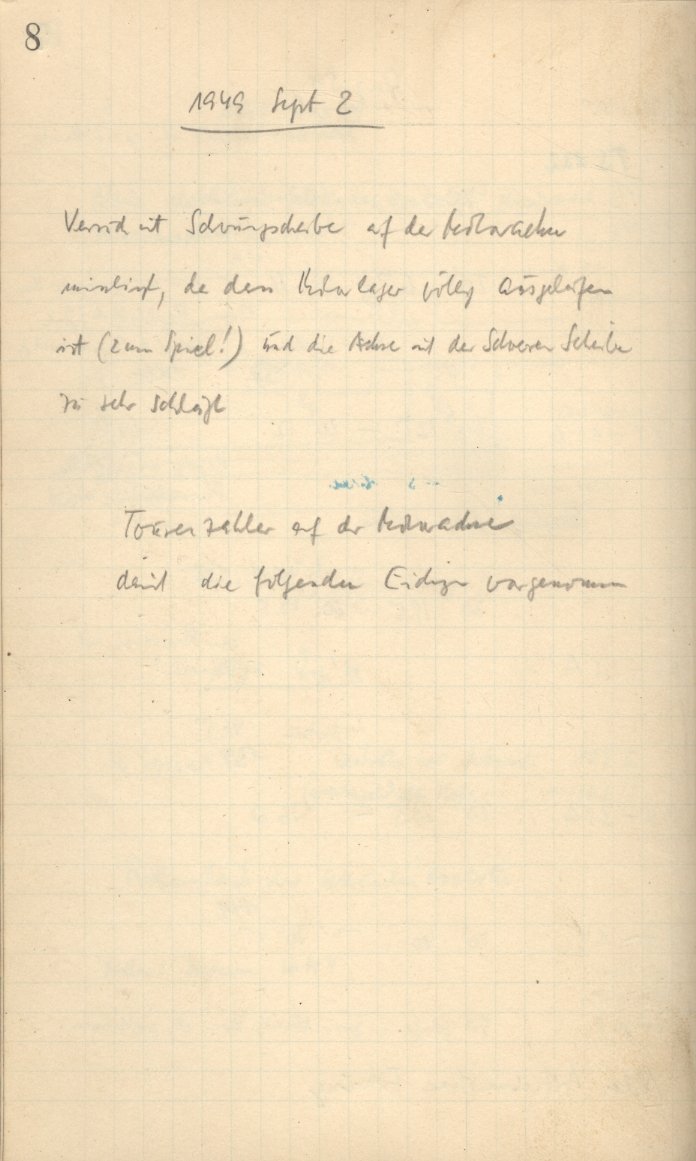 8
1949 Sept 2
Versuch mit Schwungscheibe auf der Motorachse
misslingt, da das Motorlager völlig ausgelaufen
ist (zum Spiel!) und die Achse mit der schweren Scheibe
zu sehr schlägt
Tourenzähler auf der Motorachse
damit die folgenden vorgenommen